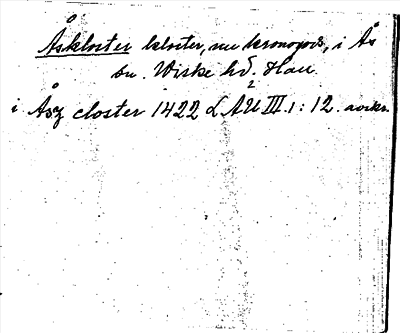 Åskloster kloster, nu kronogods, i Ås
sn. Viske hd. Hall.
i Åsz closter 1422 LÅU III.1:12. avskr.